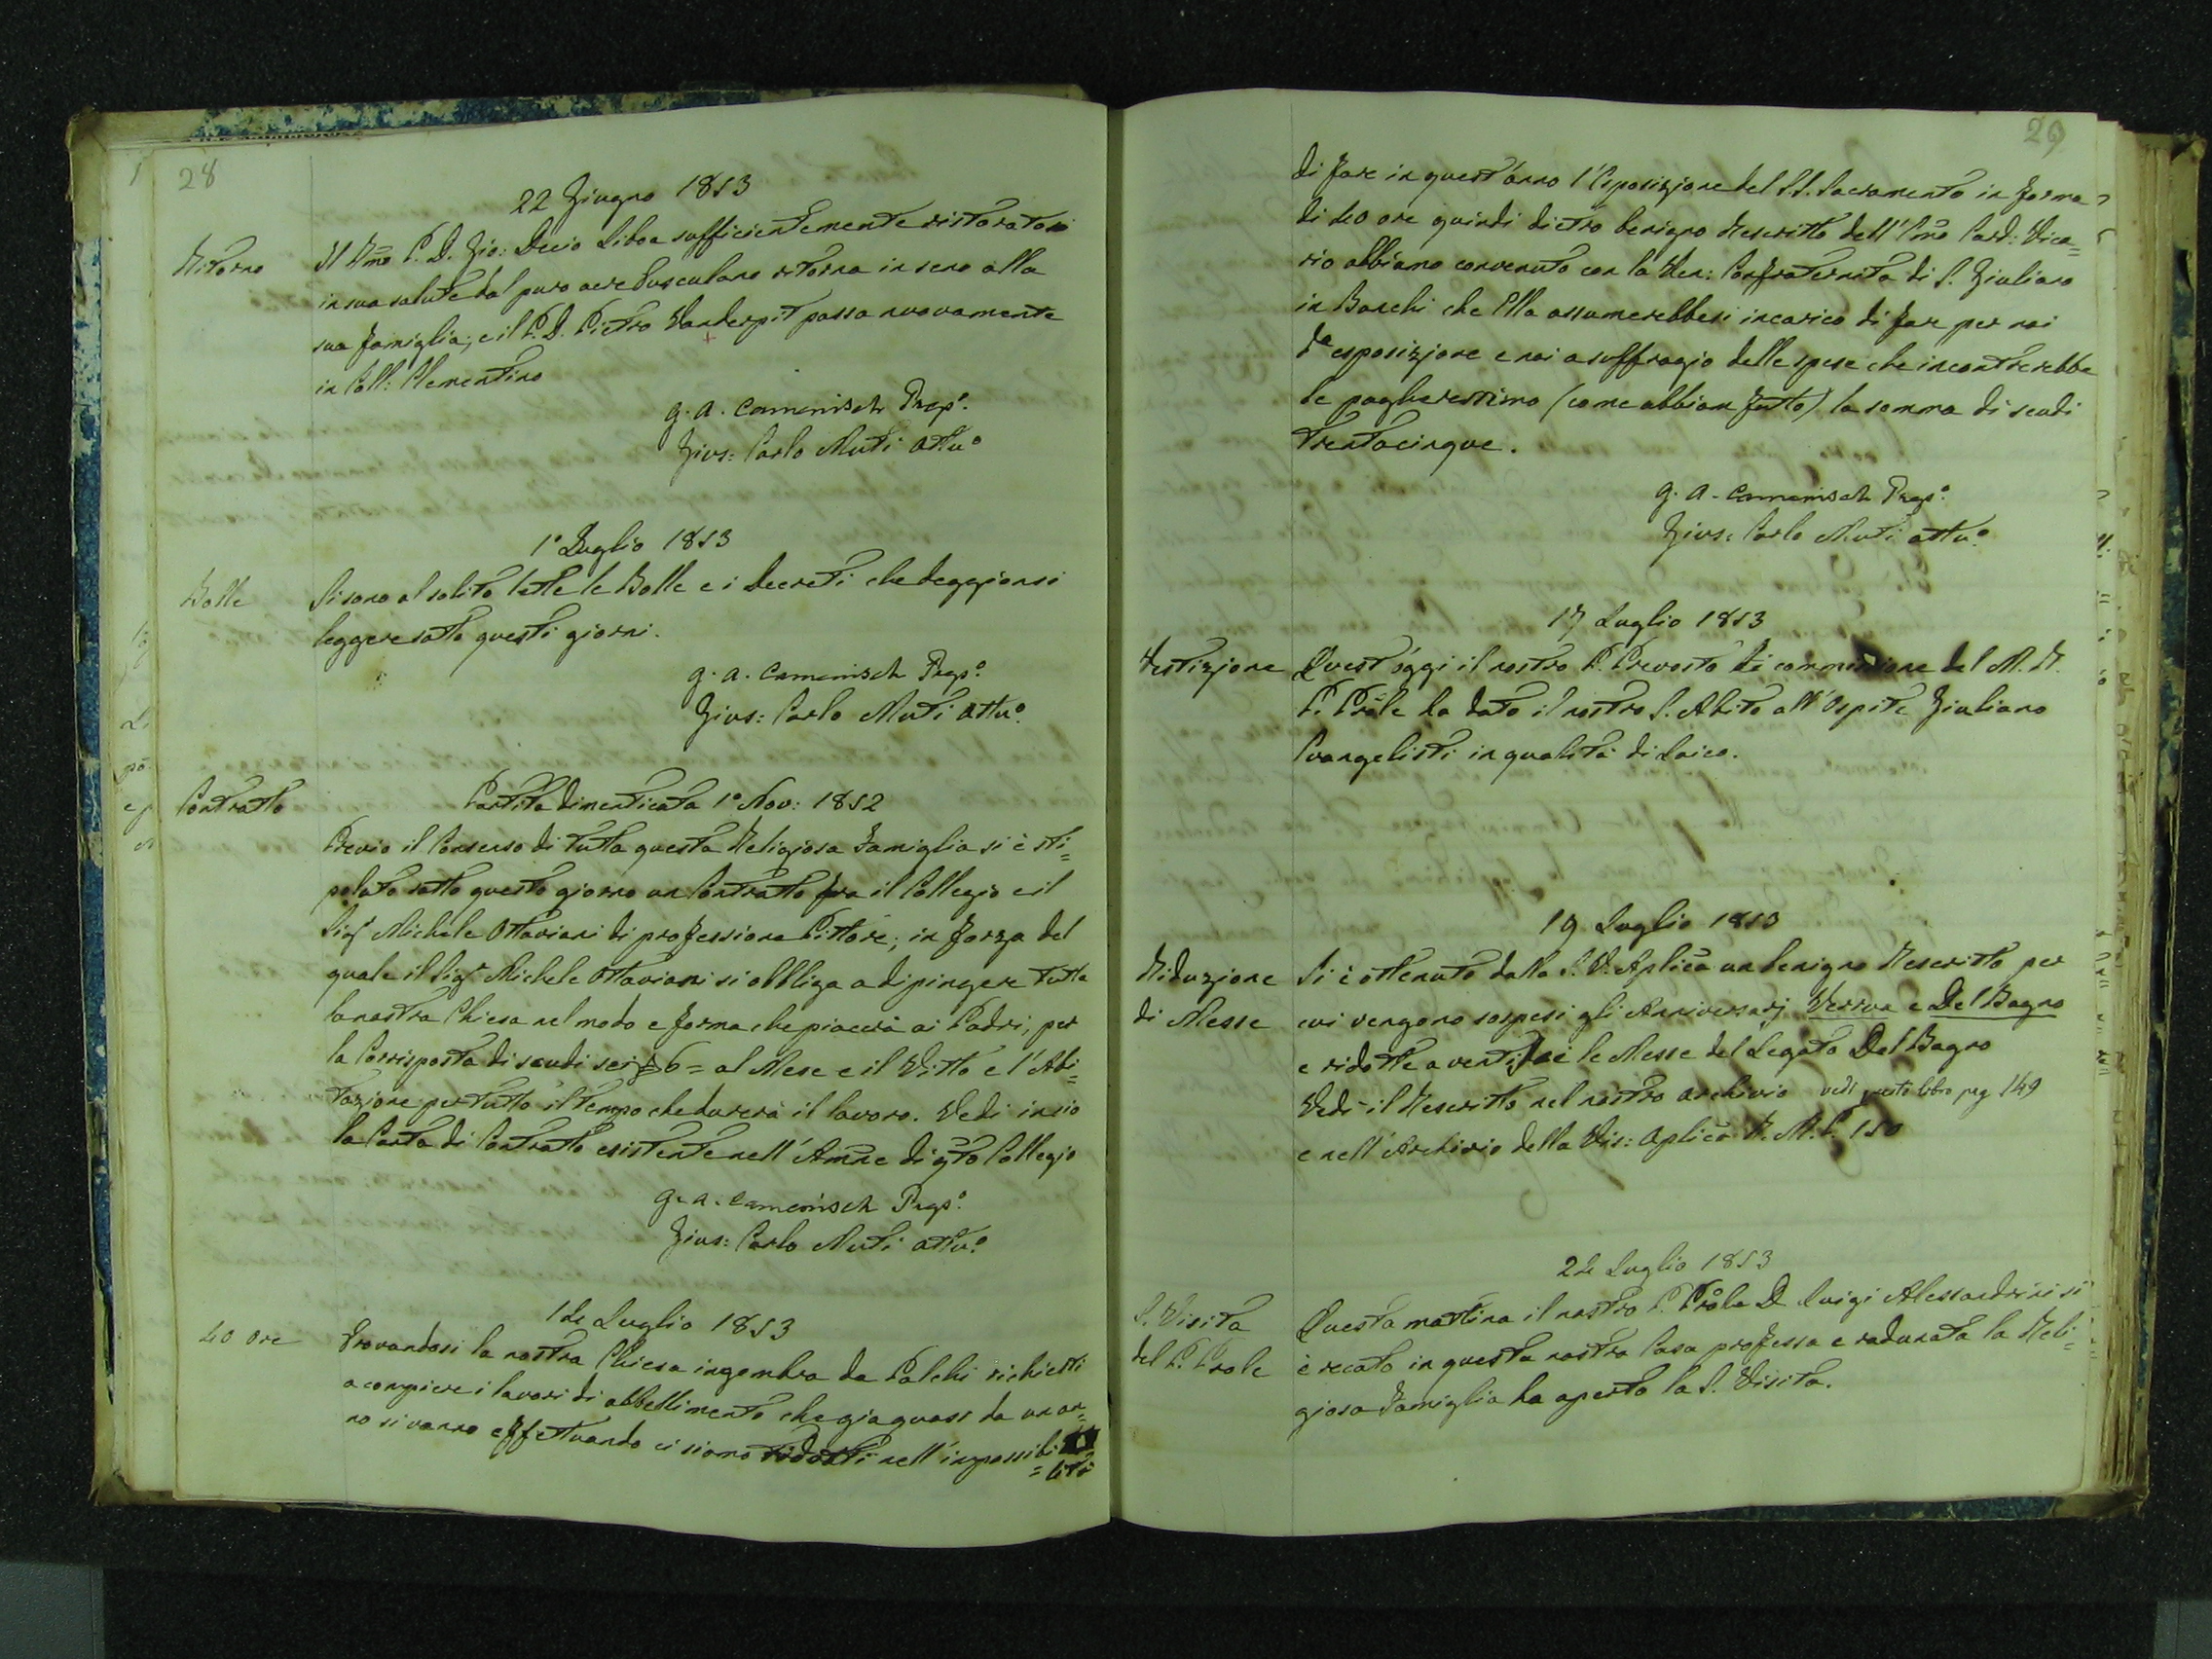 28
22 Giugno 1853
Ritorno
Il Rmo P. D. Gio: Decio Libois sufficientemente ristoratosi
in sua salute dal puro aere Tusculano ritorna in seno alla
sua famiglia; e il P. D. Pietro Vanderpit passa nuovamente
in Coll: Clementino
G. A. Camenisch Prepo.
Gius: Carlo Muti Attuo
1° Luglio 1853
Bolle
Si sono al solito lette le Bolle e i Decreti che deggionsi
leggere sotto questi giorni.
G. A. Camenisch Prepo.
Gius: Carlo Muti Attuo.
Contratto
Partita dimenticata 1° Nov: 1852
Previo il Consenso di tutta questa Religiosa Famiglia si è sti=
pulato sotto questo giorno un Contratto fra il Collegio e il
Sigr Michele Ottaviani di professione Pittore; in forza del
quale il Sigr Michele Ottaviani si obbliga a dipingere tutta
la nostra Chiesa nel modo e forma che piacerà ai Padri, per
la Corrisposta di scudi sei 6= al Mese e il Vitto e l'Abi=
tazione per tutto il tempo che durerà il lavoro. Vedi in ciò
la Carta di Contratto esistente nell'Amne di qto Collegio
G. A. Camenisch Prepo.
Gius: Carlo Muti Attuo.
14 Luglio 1853
40 ore
Trovandosi la nostra Chiesa ingombra da Palchi richiesti
a compiere i lavori di abbellimento che già quasi da un an=
no si vanno effettuando ci siamo ridotti nell'impossibi
=lità
29
di fare in quest'anno l'Esposizione del SS. Sacramento in forma
di 40 ore quindi dietro benigno Rescritto dell'Emo Card: Vica=
rio abbiamo convenuto con la Ven: Confraternita di S. Giuliano
in Banchi che Ella assumerebbesi incarico di fare per noi
da esposizione e noi a suffragio delle spese che incontrerebbe
le pagheressimo (come abbiam fatto) la somma di scudi
trentacinque.
G. A. Camenisch Prepo.
Gius: Carlo Muti Attuo.
17 Luglio 1853
Vestizione
Quest'oggi il nostro P. Prevosto di commissione del M. R.
P. Prole ha dato il nostro S. Abito all'Ospite Giuliano
Evangelisti in qualità di Laico.
19 Luglio 1853
Riduzione
di Messe
Si è ottenuto dalla S. V. Aplica un benigno Rescritto per
cui vengono sospesi gli Anniversarj Verrua e Del Bagno
e ridotte a ventisei le Messe del Legato Del Bagno
Vedi il Rescritto nel nostro archivio vedi questo libro pag 149
e nell'Archivio della Vis: Aplica R. M. P. 150
24 Luglio 1853
S. Visita
del P. Prole
Questa mattina il nostro P. Prole D. Luigi Alessandrini si
è recato in questa nostra Casa professa e radunata la Reli=
giosa Famiglia ha aperto la S. Visita.